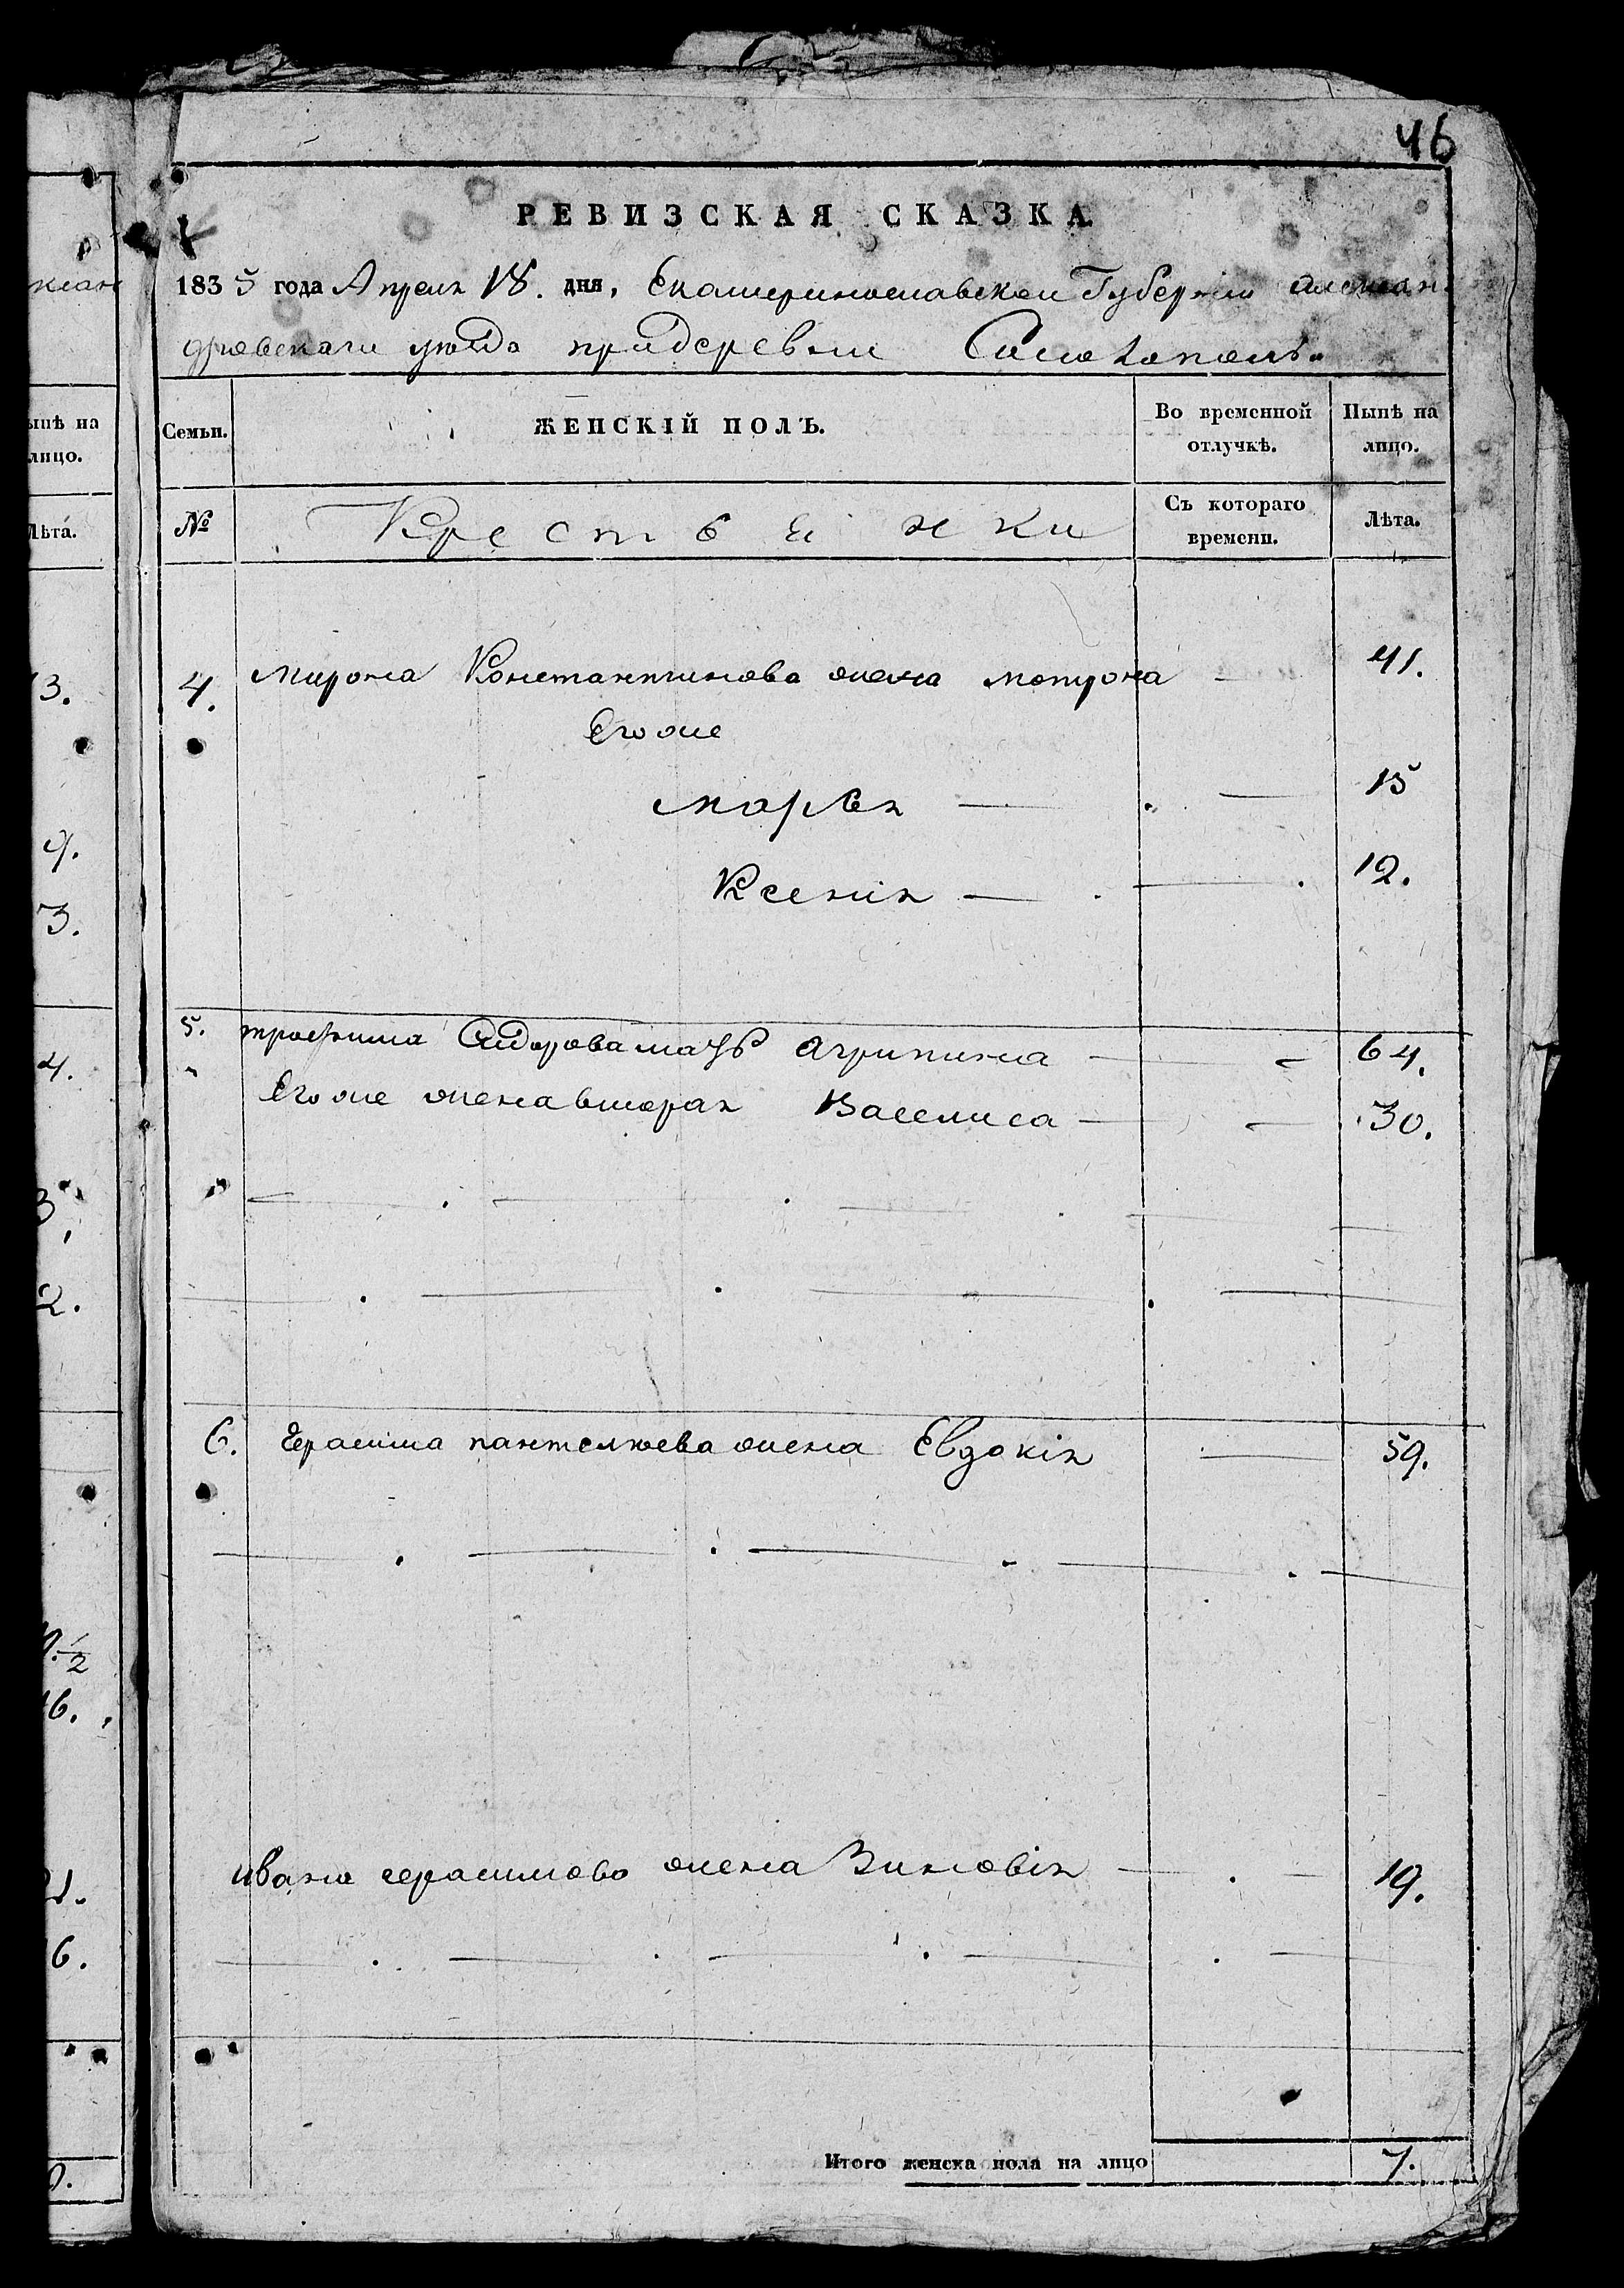 46
РЕВИЗСКАЯ СКАЗКА
1835 года Апреля 18. дня, Екатеринославской Губернии Алексан-
дровскаго уезда при деревни
Семьи.
ЖЕНСКІЙ ПОЛЪ.
Во временной отлучкѣ.
Нынѣ на лицо.
№
Крестьянки
Съ котораго времени.
Лѣта.
4. Мирона Константинова жена Мотрона 41.
Его же
Марья 15
Ксенія 12.
5. Трофима Сидорова мать Агрипина 64.
Его же жена вторая Василиса 30.
6. Герасима Пантелѣева жена Евдокія 59.
Ивана Герасимова жена Зиновія 19.
Итого женска пола на лицо 7.
ынѣ на
лицо.
Лѣта.
3.
9.
3.
4.
3,
2.
6.
6.